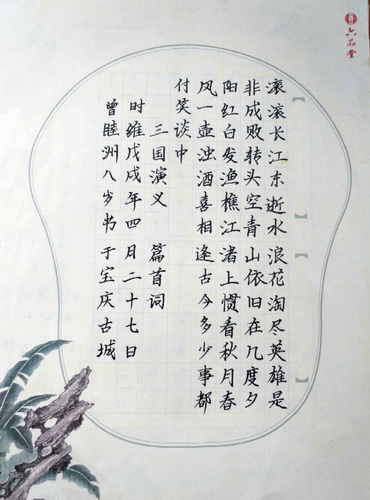 六品堂
滚滚长江东逝水浪花淘尽英雄是
非成败转头空青山依旧在几度夕
阳红白发渔樵江渚上惯看秋月春
风一壶浊酒喜相逢古今多少事都
付笑谈中
三国演义 篇首词
时维戊戌年四月二十七日
曾睦洲八岁书于宝庆古城